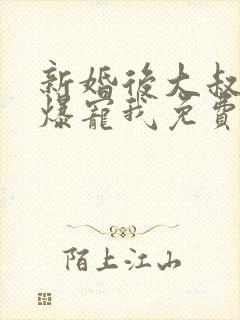 新婚後大叔
爆寵我免費
陌上江山